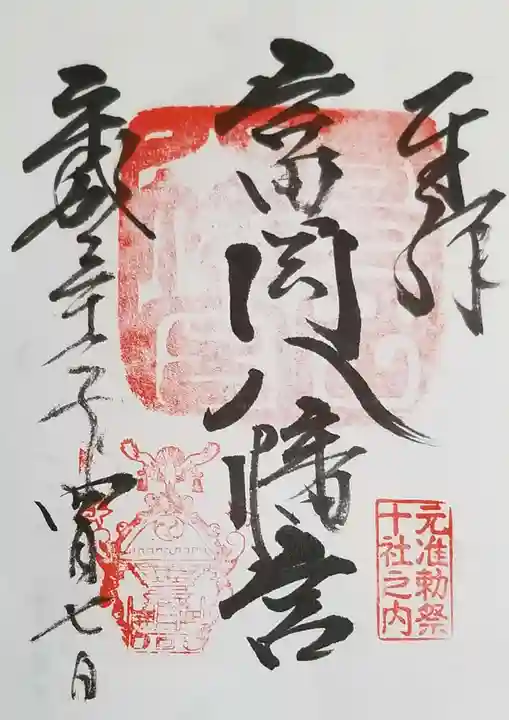 奉拝
富岡八幡宮
元准勅祭
十社之内
歳 子 四月七日